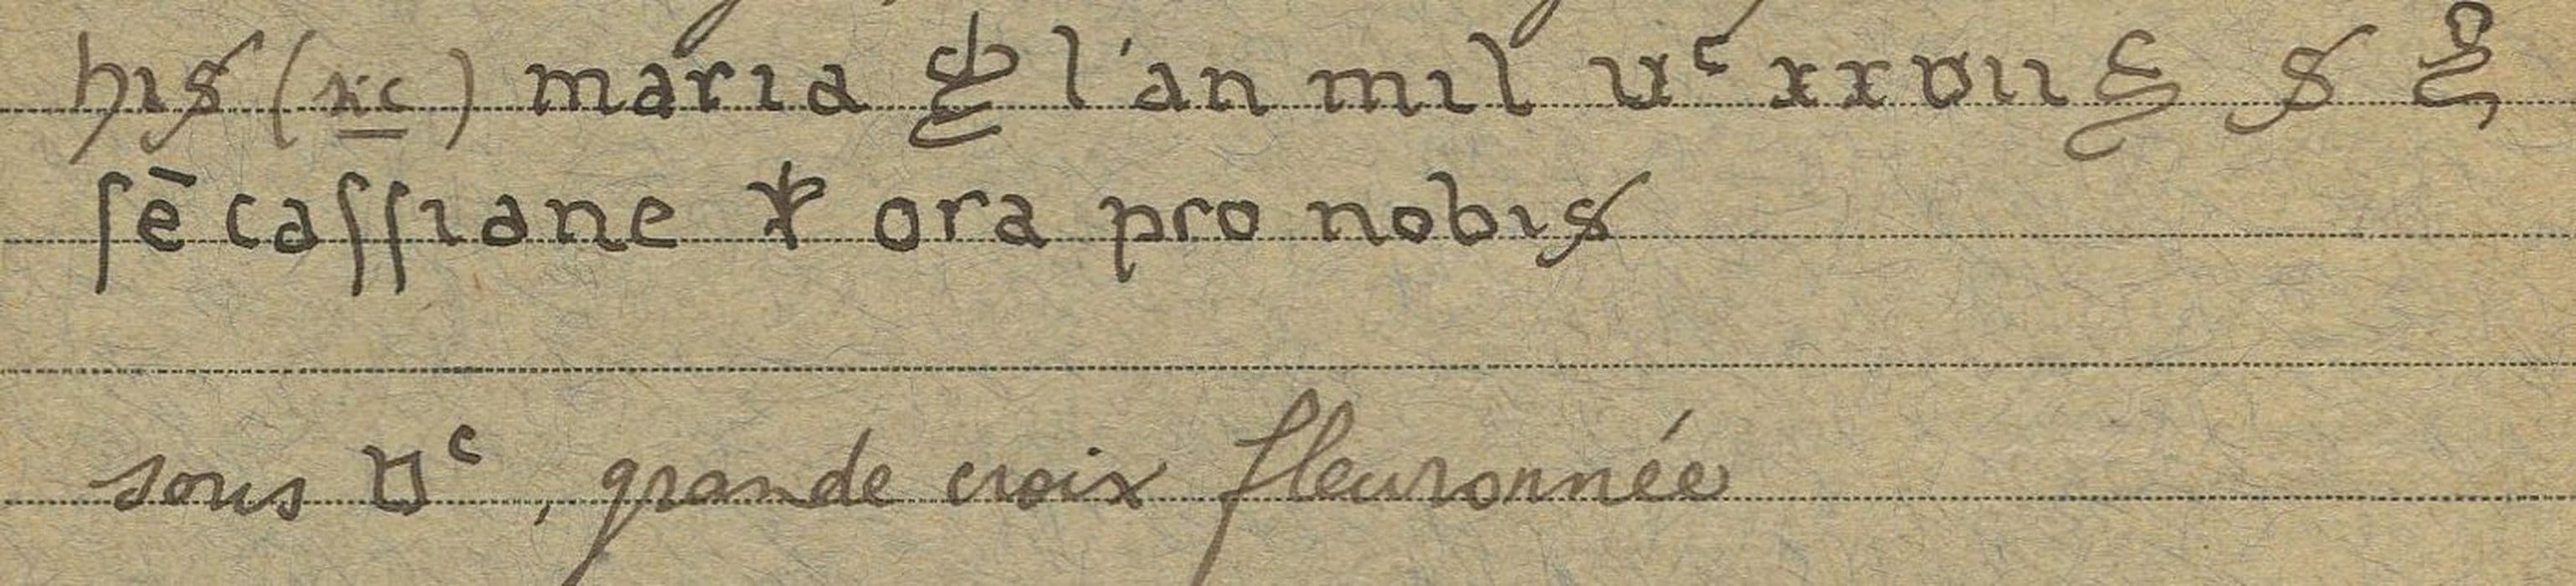 hıs (xc) maria l'an mil vc xxvıı s
ſē caſſıane ora pro nobıs
sous vc, grande croix fleuronnée